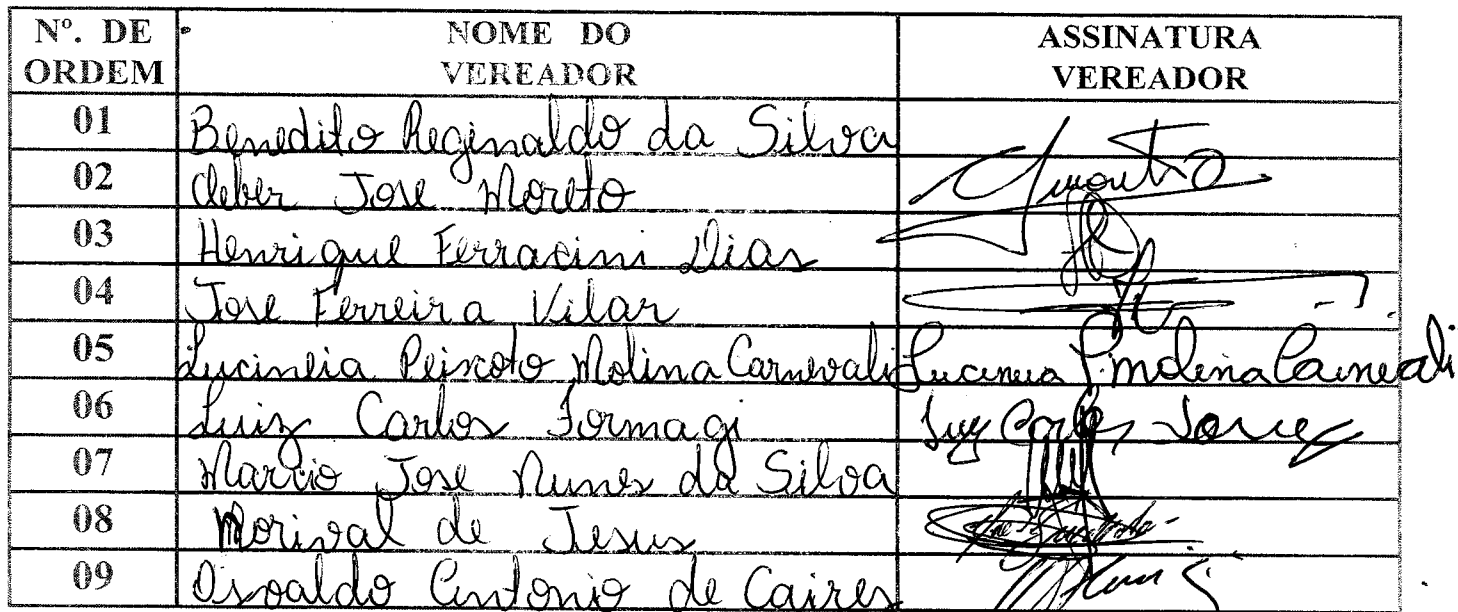 Nº. DE ORDEM NOME DO VEREADOR ASSINATURA VEREADOR
01 Benedito Reginaldo da Silva
02 Cleber Jose Moreto
03 Henrique Ferracini Dias
04 Jose Ferreira Vilar
05 Lucineia Peixoto Molina Carnevali Lucineia P. Molina Carnevali
06 Luiz Carlos Formagi Luiz Carlos
07 Marcio Jose Nunes da Silva
08 Morival de Jesus
09 Osvaldo Antonio de Caires